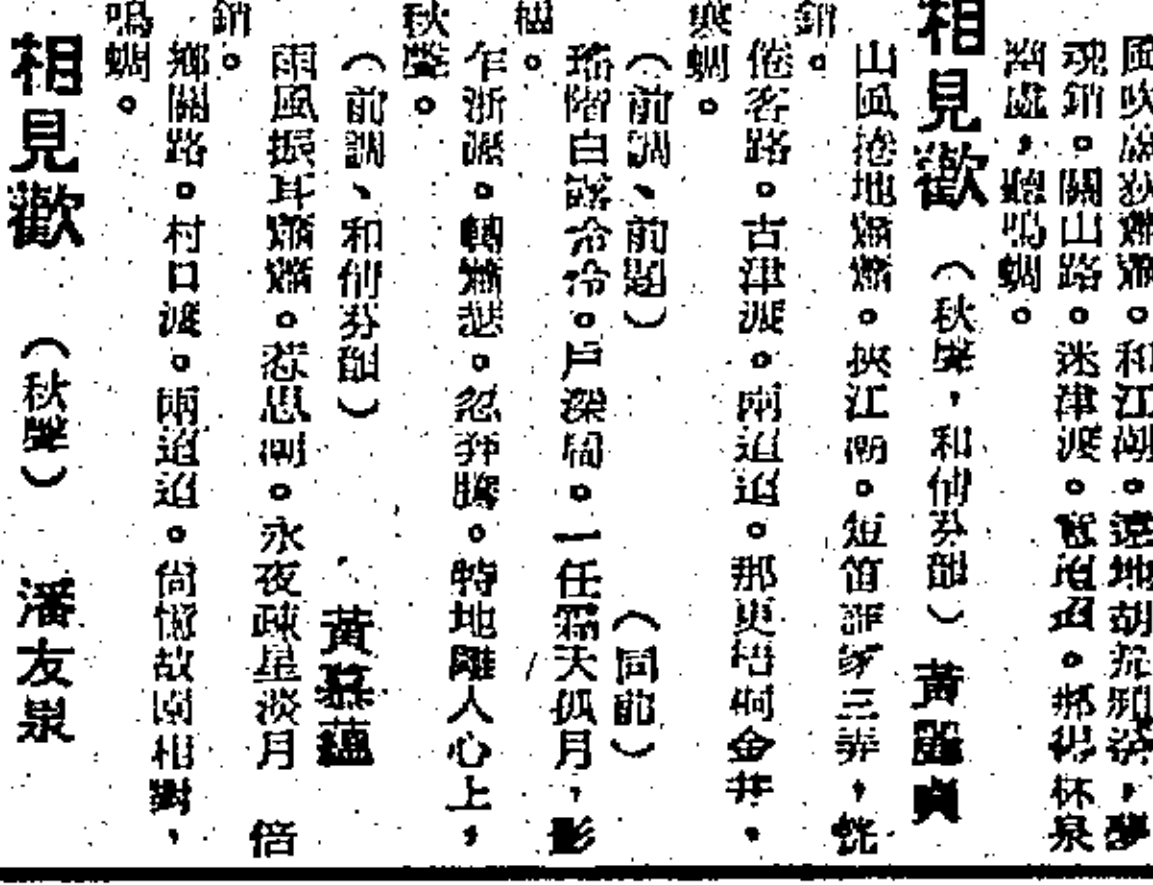 風吹蘆荻蕭蕭。和江潮。遠地胡笳和淚,夢
魂銷。關山路。迷津渡。窵迢迢。那得林泉
幽處,聽鳴蜩。
相見歡 (秋聲,和俏芬韻) 黃麗貞
山風捲地蕭蕭。挾江潮。短笛誰家三弄,魂
銷。
倦客路。古津渡。兩迢迢。那更梧桐金井,
寒蜩。
(前調、前題) (同前)
瑤階白露冷冷。戶深扃。一任霜天孤月,影
櫺。
乍淅瀝。轉蕭瑟。忽奔騰。特地離人心上,
秋聲。
(前調、和俏芬韻) 黃慕蘊
雨風振耳蕭蕭。惹思潮。永夜疎星淡月 倍
銷。
鄉關路。村口渡。兩迢迢。尙憶故園相對,
鳴蜩。
相見歡 (秋聲) 潘友泉